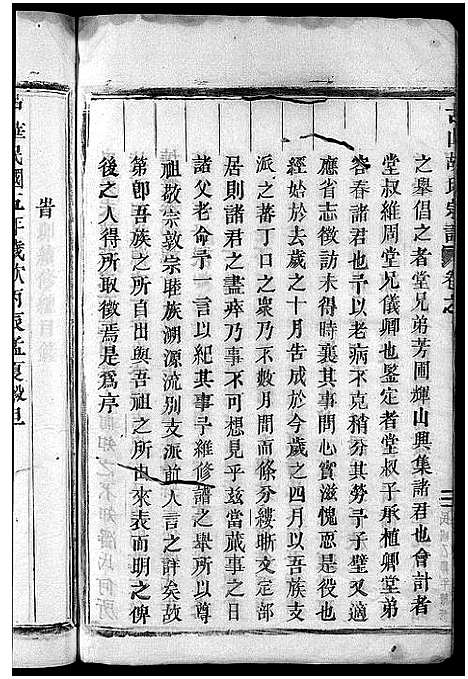 之舉倡之者堂兄弟芳圃輝山興集諸君也會計者
堂叔維周堂兄儀卿也鑒定者堂叔子承植卿堂弟
蓉春諸君也予以老病不克稍分其勞予子璧又適
應省志徵訪未得時襄其事問心實滋愧恧是舉也
應始於去歲之十月告成於今歲之四月以吾族支
派之蕃丁口之衆乃不數月間而條分縷晰文定部
居則諸君之盡瘁乃事不可想見乎茲當蕆事之日
諸父老命予一言以紀其事予維修譜之舉所以尊
祖敬宗敦宗睦族溯源流别支派前人言之詳矣故
第卽吾族之所自出與吾祖之所由來表而明之俾
後之人得所取徵焉是爲序
時
中華民國五年歲次丙辰孟夏穀旦
胡氏宗譜 卷之